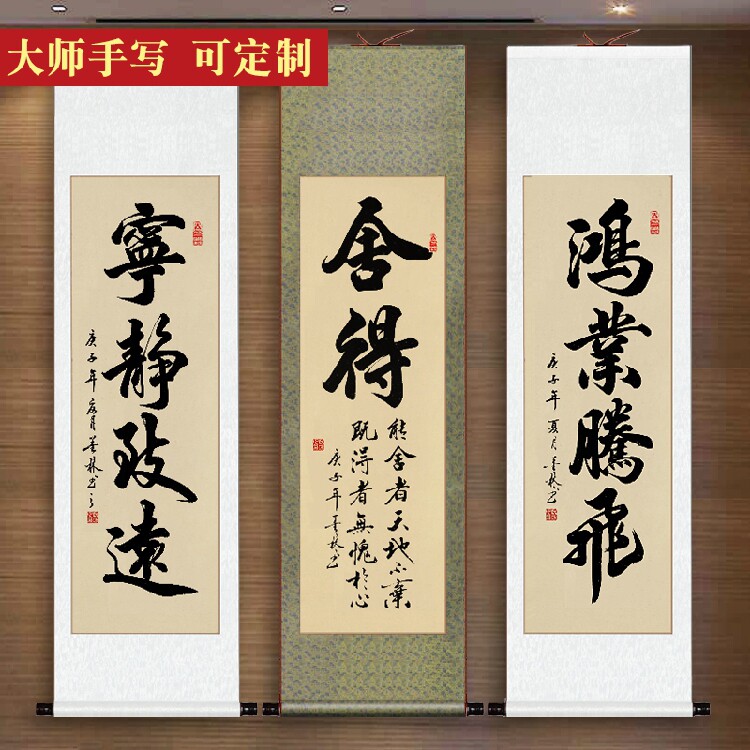 大师手写 可定制
寧靜致遠
庚子年夏月
舍得
能舍者天地不棄
既得者無愧於心
庚子年
鴻業騰飛
庚子年夏月